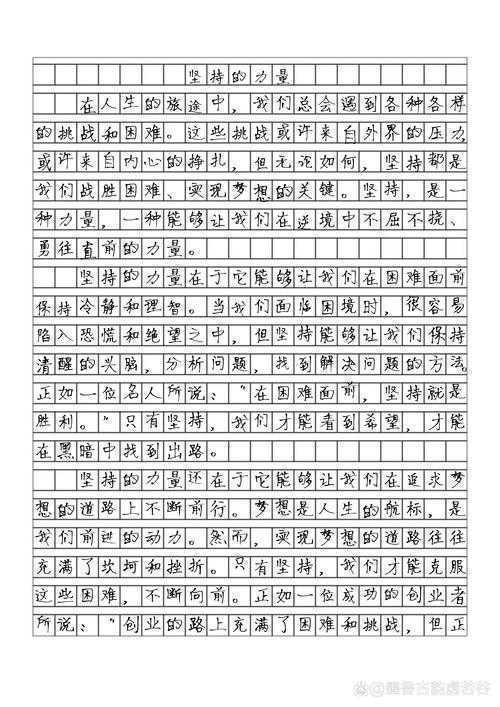 坚持的力量
在人生的旅途中，我们总会遇到各种各样
的挑战和困难。这些挑战或许来自外界的压力，
或许来自内心的挣扎，但无论如何，坚持都是
我们战胜困难、实现梦想的关键。坚持，是一
种力量，一种能够让我们在逆境中不屈不挠、
勇往直前的力量。
坚持的力量在于它能够让我们在困难面前
保持冷静和理智。当我们面临困境时，很容易
陷入恐慌和绝望之中，但坚持能够让我们保持
清醒的头脑，分析问题，找到解决问题的方法。
正如一位名人所说：“在困难面前，坚持就是
胜利。”只有坚持，我们才能看到希望，才能
在黑暗中找到出路。
坚持的力量还在于它能够让我们在追求梦
想的道路上不断前行。梦想是人生的航标，是
我们前进的动力。然而，实现梦想的道路往往
充满了坎坷和挫折。只有坚持，我们才能克服
这些困难，不断向前。正如一位成功的创业者
所说：“创业的路上充满了困难和挑战，但正